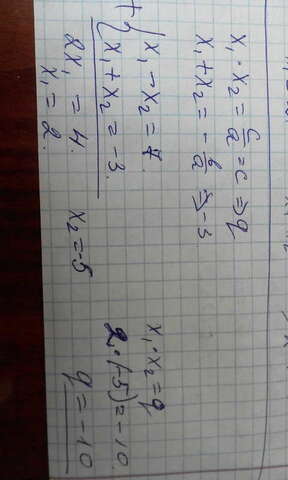 x₁ · x₂ = c/a = c ⇒ q
x₁ + x₂ = - b/a ⇒ -3
+ { x₁ - x₂ = 7
x₁ + x₂ = -3.
2x₁ = 4.
x₁ = 2.
x₂ = -5
x₁ · x₂ = q
2 · (-5) = -10.
q = -10